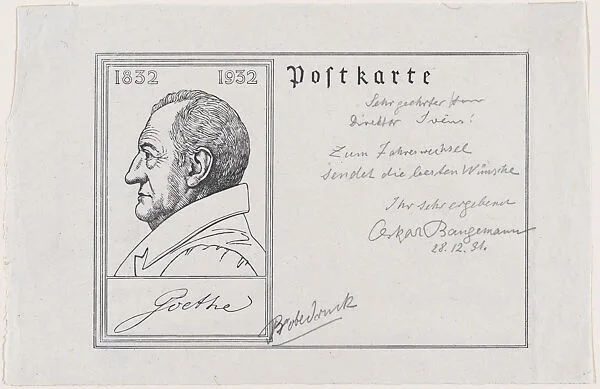 1832 1932
Postkarte
Sehr geehrter Herr
Direktor Ivins!
Zum Jahreswechsel
sendet die besten Wünsche
Ihr sehr ergebener
Oskar Bangemann
28.12.31.
Goethe
Probedruck